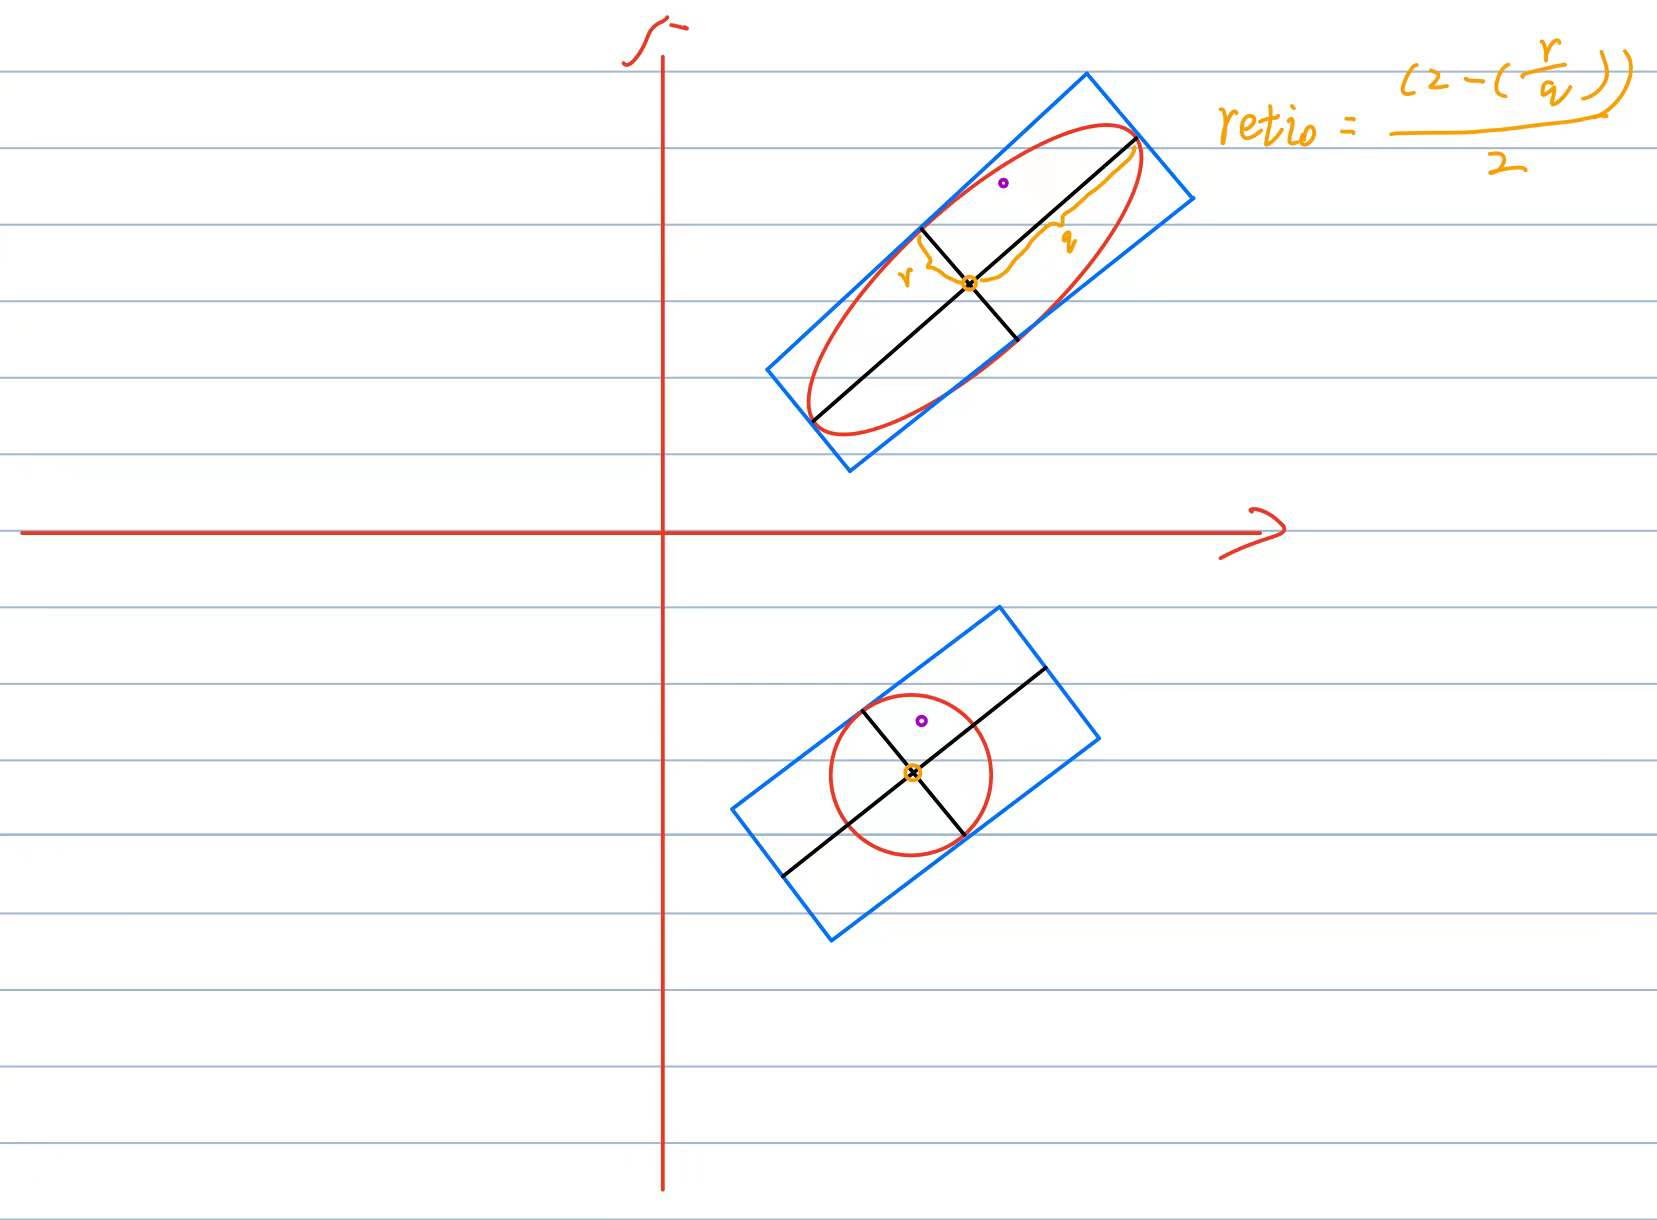 retio = (2-(r/q))/2
r
q